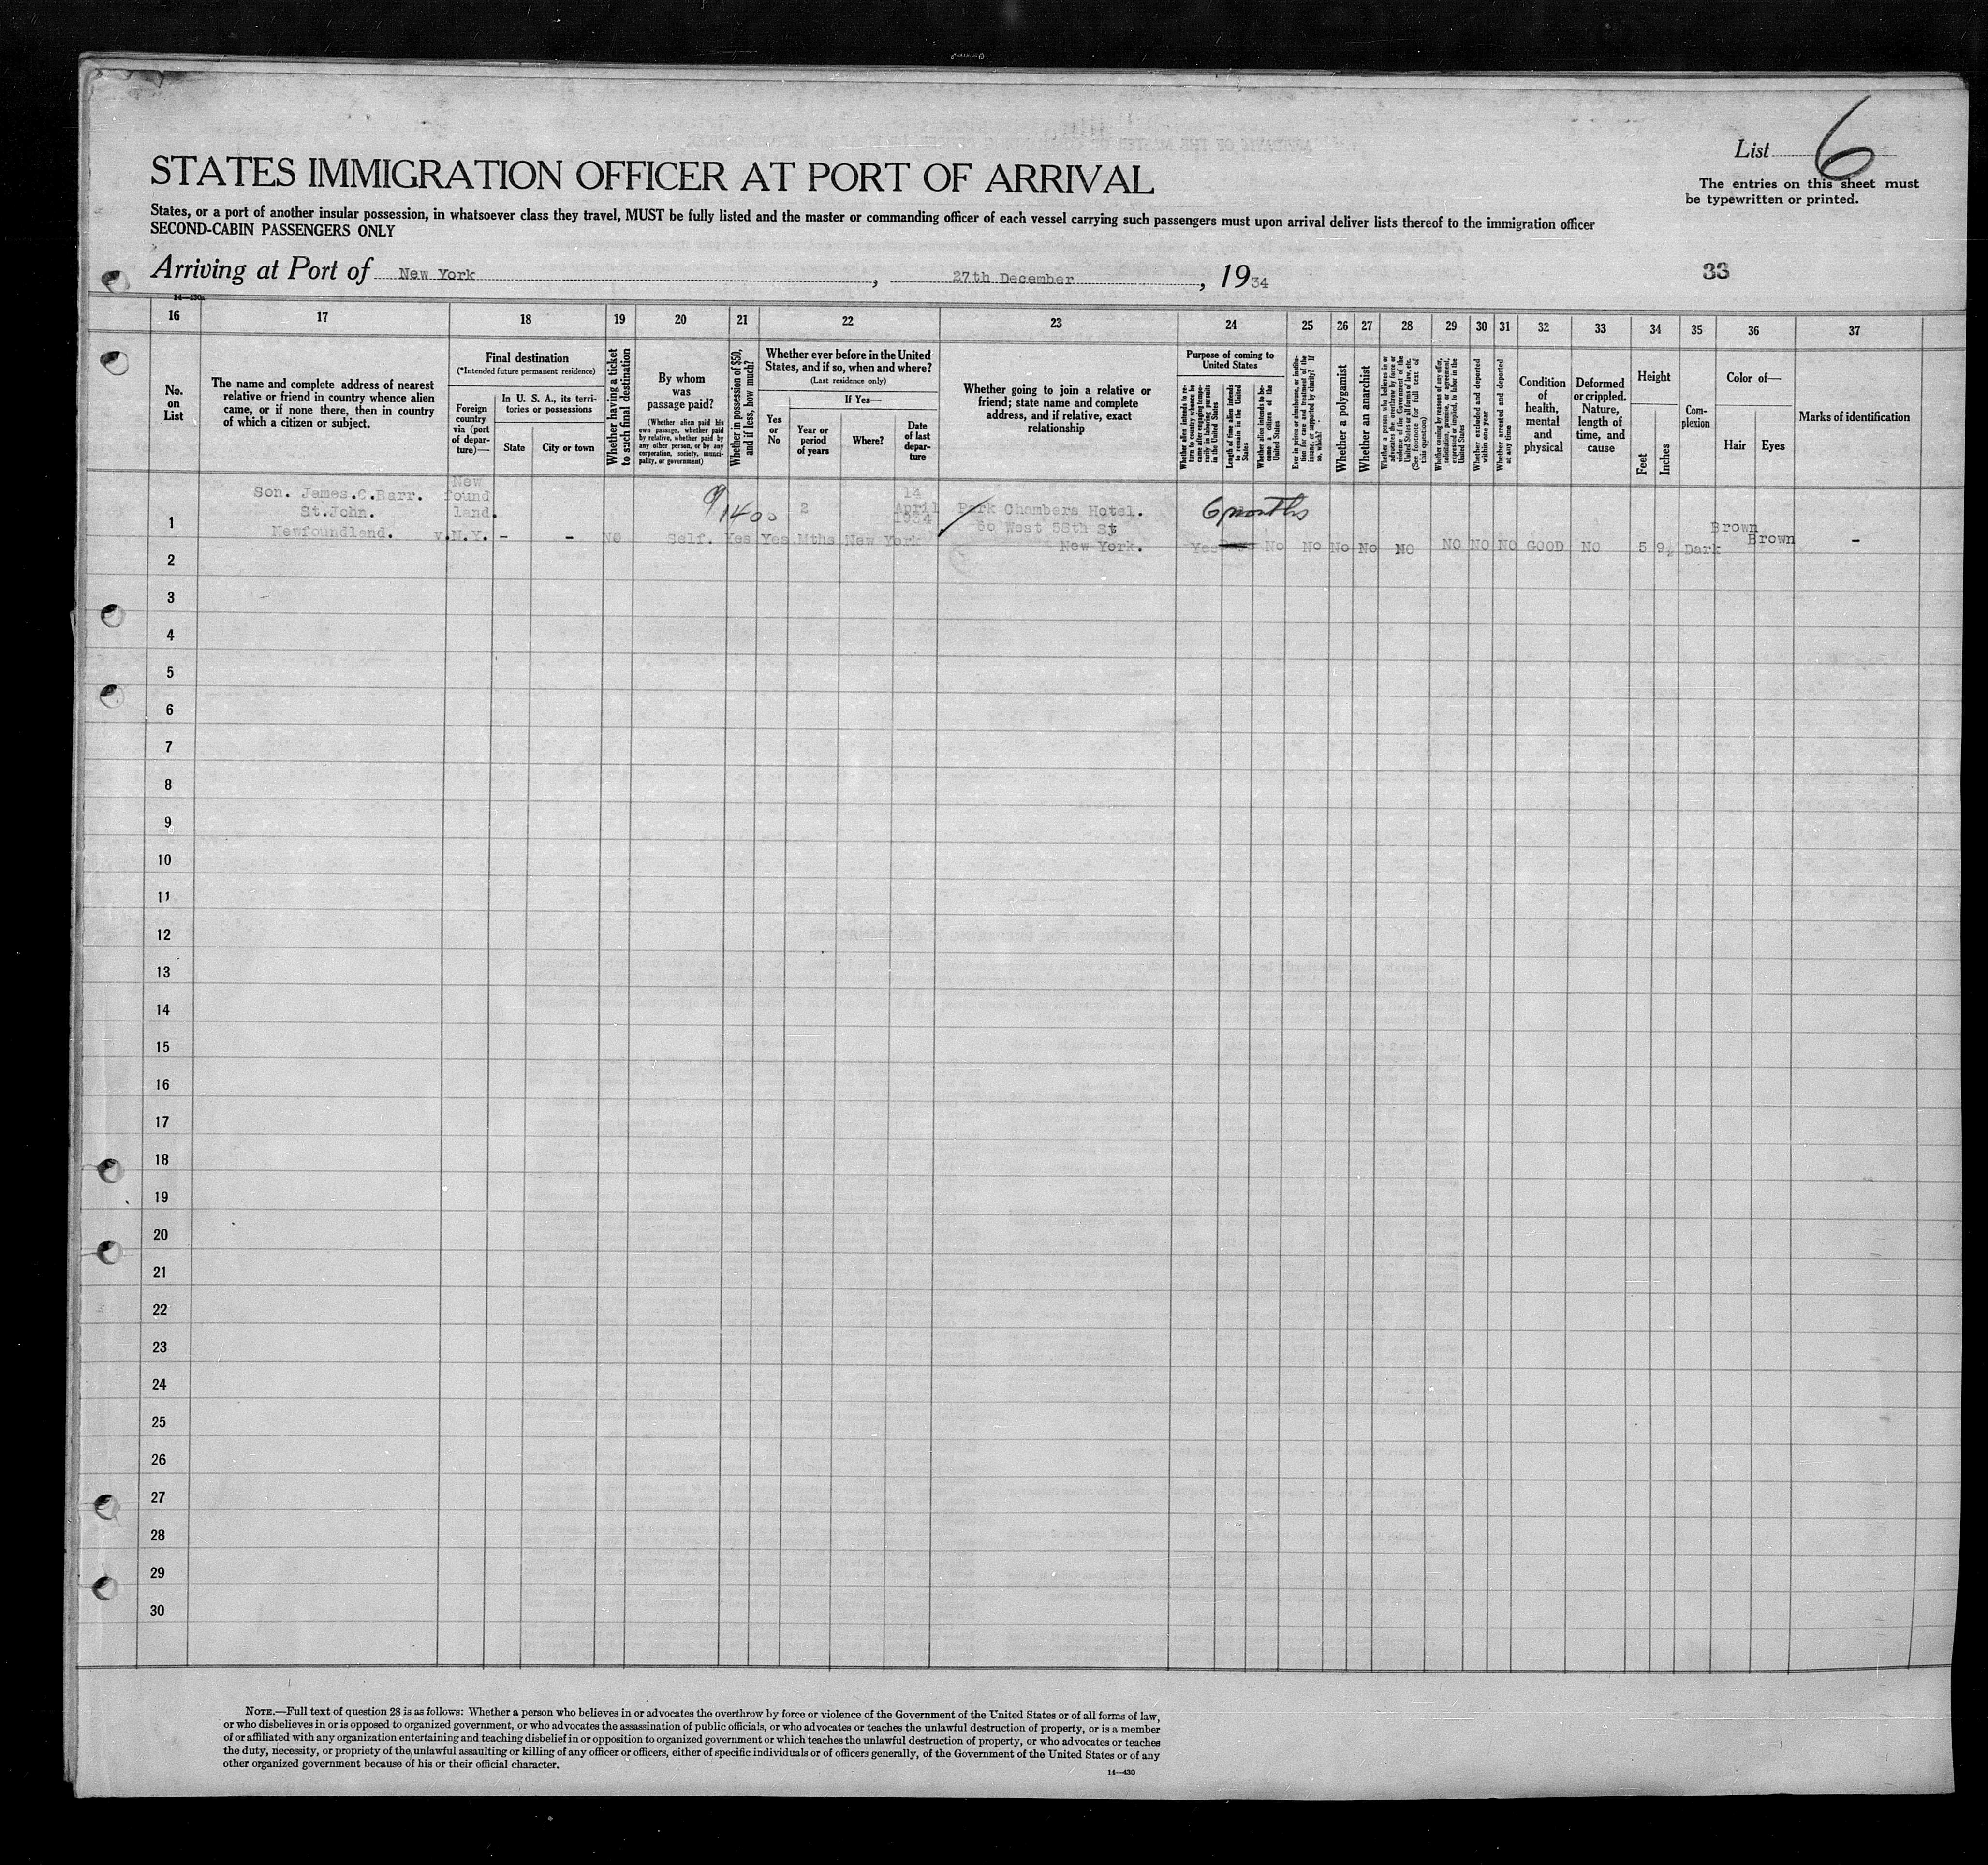 List 6
The entries on this sheet must
be typewritten or printed.
STATES IMMIGRATION OFFICER AT PORT OF ARRIVAL
States, or a port of another insular possession, in whatsoever class they travel, MUST be fully listed and the master or commanding officer of each vessel carrying such passengers must upon arrival deliver lists thereof to the immigration officer
SECOND-CABIN PASSENGERS ONLY
Arriving at Port of New York, 27th December, 1934
33
14—430a
16 17 18 19 20 21 22 23 24 25 26 27 28 29 30 31 32 33 34 35 36 37
No.
on
List
The name and complete address of nearest
relative or friend in country whence alien
came, or if none there, then in country
of which a citizen or subject.
Final destination
(*Intended future permanent residence)
Foreign
country
via (port
of depar-
ture)—
In U. S. A., its terri-
tories or possessions
State
City or town
Whether having a ticket
to such final destination
By whom
was
passage paid?
(Whether alien paid his
own passage, whether paid
by relative, whether paid by
any other person, or by any
corporation, society, munici-
pality, or government)
Whether in possession of $50,
and if less, how much?
Whether ever before in the United
States, and if so, when and where?
(Last residence only)
Yes
or
No
If Yes—
Year or
period
of years
Where?
Date
of last
depar-
ture
Whether going to join a relative or
friend; state name and complete
address, and if relative, exact
relationship
Purpose of coming to
United States
Whether alien intends to re-
turn to country whence he
came after engaging tempo-
rarily in laboring pursuits
in the United States
Length of time alien intends
to remain in the United
States
Whether alien intends to be-
come a citizen of the
United States
Ever in prison or almshouse, or institu-
tion for care and treatment of the
insane, or supported by charity? If
so, which?
Whether a polygamist
Whether an anarchist
Whether a person who believes in or
advocates the overthrow by force or
violence of the Government of the
United States or all forms of law, etc.
(See footnote for full text of
this question)
Whether coming by reasons of any offer,
solicitation, promise, or agreement,
expressed or implied, to labor in the
United States
Whether excluded and deported
within one year
Whether arrested and deported
at any time
Condition
of
health,
mental
and
physical
Deformed
or crippled.
Nature,
length of
time, and
cause
Height
Feet
Inches
Com-
plexion
Color of—
Hair
Eyes
Marks of identification
1
Son. James.C.Barr.
St.John.
Newfoundland.
New
found
land.
v.N.Y.
-
-
NO
Self.
Yes
1400
Yes
2
Mths
New York
14
April
1934
Park Chambers Hotel.
60 West 58th St
New York.
6 months
Yes
No
NO
No
No
NO
NO
NO
NO
GOOD
NO
5
9½
Dark
Brown
Brown
-
2
3
4
5
6
7
8
9
10
11
12
13
14
15
16
17
18
19
20
21
22
23
24
25
26
27
28
29
30
NOTE.—Full text of question 28 is as follows: Whether a person who believes in or advocates the overthrow by force or violence of the Government of the United States or of all forms of law,
or who disbelieves in or is opposed to organized government, or who advocates the assassination of public officials, or who advocates or teaches the unlawful destruction of property, or is a member
of or affiliated with any organization entertaining and teaching disbelief in or opposition to organized government or which teaches the unlawful destruction of property, or who advocates or teaches
the duty, necessity, or propriety of the unlawful assaulting or killing of any officer or officers, either of specific individuals or of officers generally, of the Government of the United States or of any
other organized government because of his or their official character.
14—430